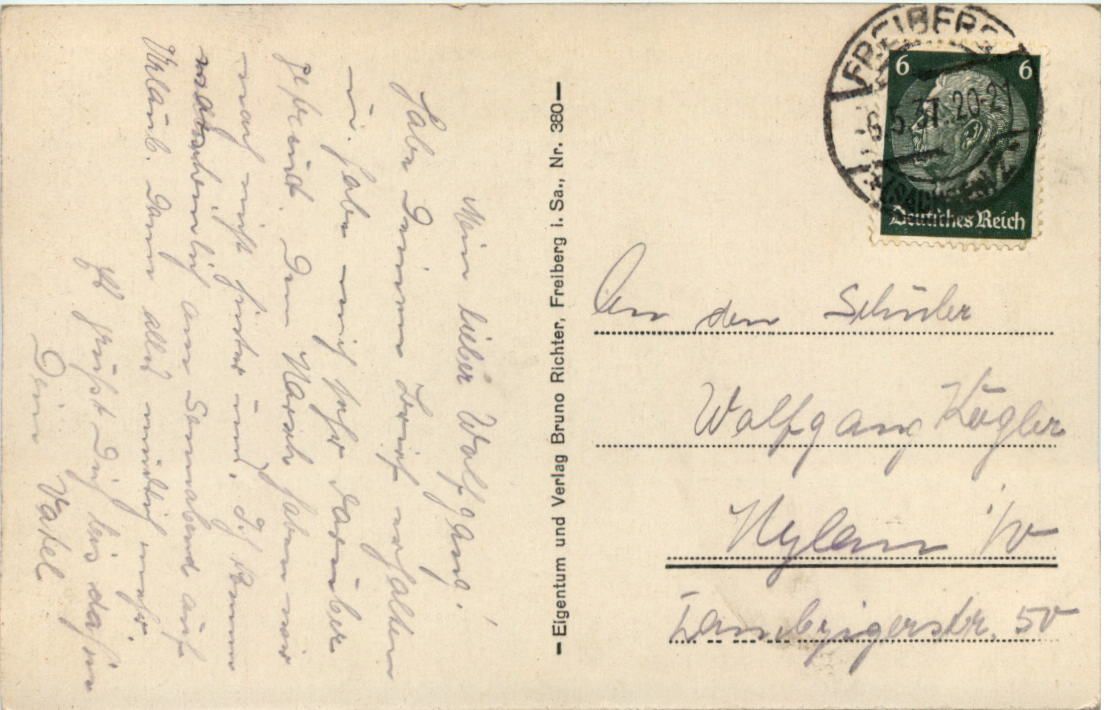 Mein lieber Wolfgang!
Habe Deinen Brief erhalten
u. habe mich sehr darüber
gefreut. Den Marsch haben wir
nach uns. Ich komme
wahrscheinlich am Sonnabend auf
Urlaub. Dann alles mündlich mehr.
Es grüßt Dich bis dahin
Dein Vatel
— Eigentum und Verlag Bruno Richter, Freiberg i. Sa., Nr. 380 —
FREIBERG
6.5.37. 20-21
(SACHSEN)
6 6
Deutsches Reich
An den Schüler
Wolfgang Kögler
Mylau i/V
50